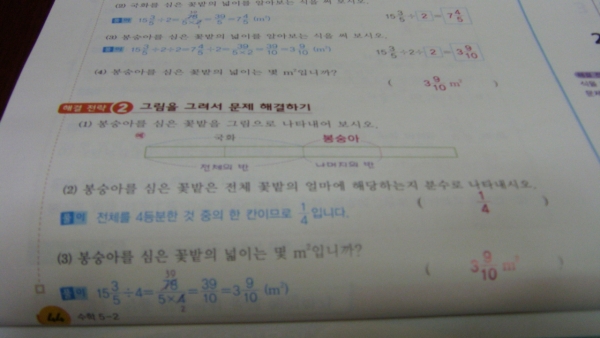 (2) 국화를 심은 꽃밭의 넓이를 알아보는 식을 써 보시오.
풀이 15 3/5 ÷2= 39 78/5×2 = 39/5 =7 4/5 (m²) 15 3/5 ÷ 2 = 7 4/5
15 3/5 ÷2÷2=7 4/5 ÷2= 39/5×2 = 39/10 =3 9/10 (m²) 15 3/5 ÷2÷ 2 = 3 9/10
(4) 봉숭아를 심은 꽃밭의 넓이는 몇 m²입니까? ( 3 9/10 m² )
해결 전략 2 그림을 그려서 문제 해결하기
(1) 봉숭아를 심은 꽃밭을 그림으로 나타내어 보시오.
예 국화 봉숭아
전체의 반 나머지의 반
(2) 봉숭아를 심은 꽃밭은 전체 꽃밭의 얼마에 해당하는지 분수로 나타내시오.
풀이 전체를 4등분한 것 중의 한 칸이므로 1/4 입니다. ( 1/4 )
(3) 봉숭아를 심은 꽃밭의 넓이는 몇 m²입니까?
풀이 15 3/5 ÷4= 39 78/5×4 2 = 39/10 =3 9/10 (m²) ( 3 9/10 m² )
44 수학 5-2